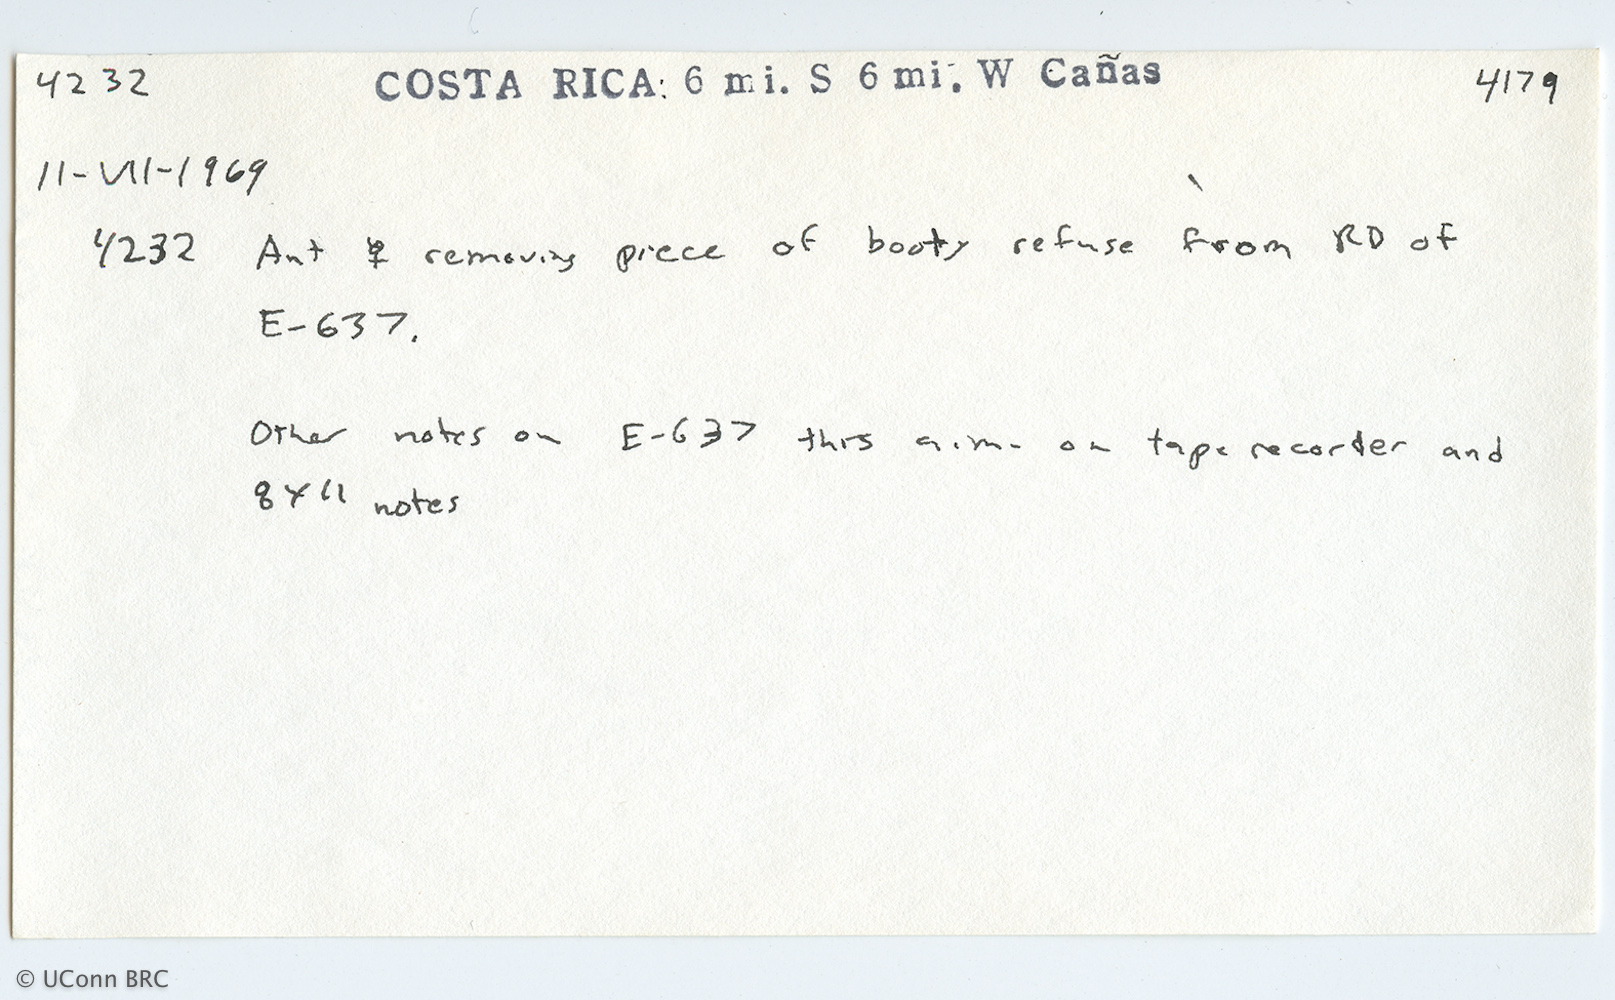 4232 COSTA RICA: 6 mi. S 6 mi. W Cañas 4179
11-VII-1969
4232 Ant ☿ removing piece of booty refuse from RD of
E-637.
Other notes on E-637 this a.m. on tape recorder and
8x11 notes
© UConn BRC